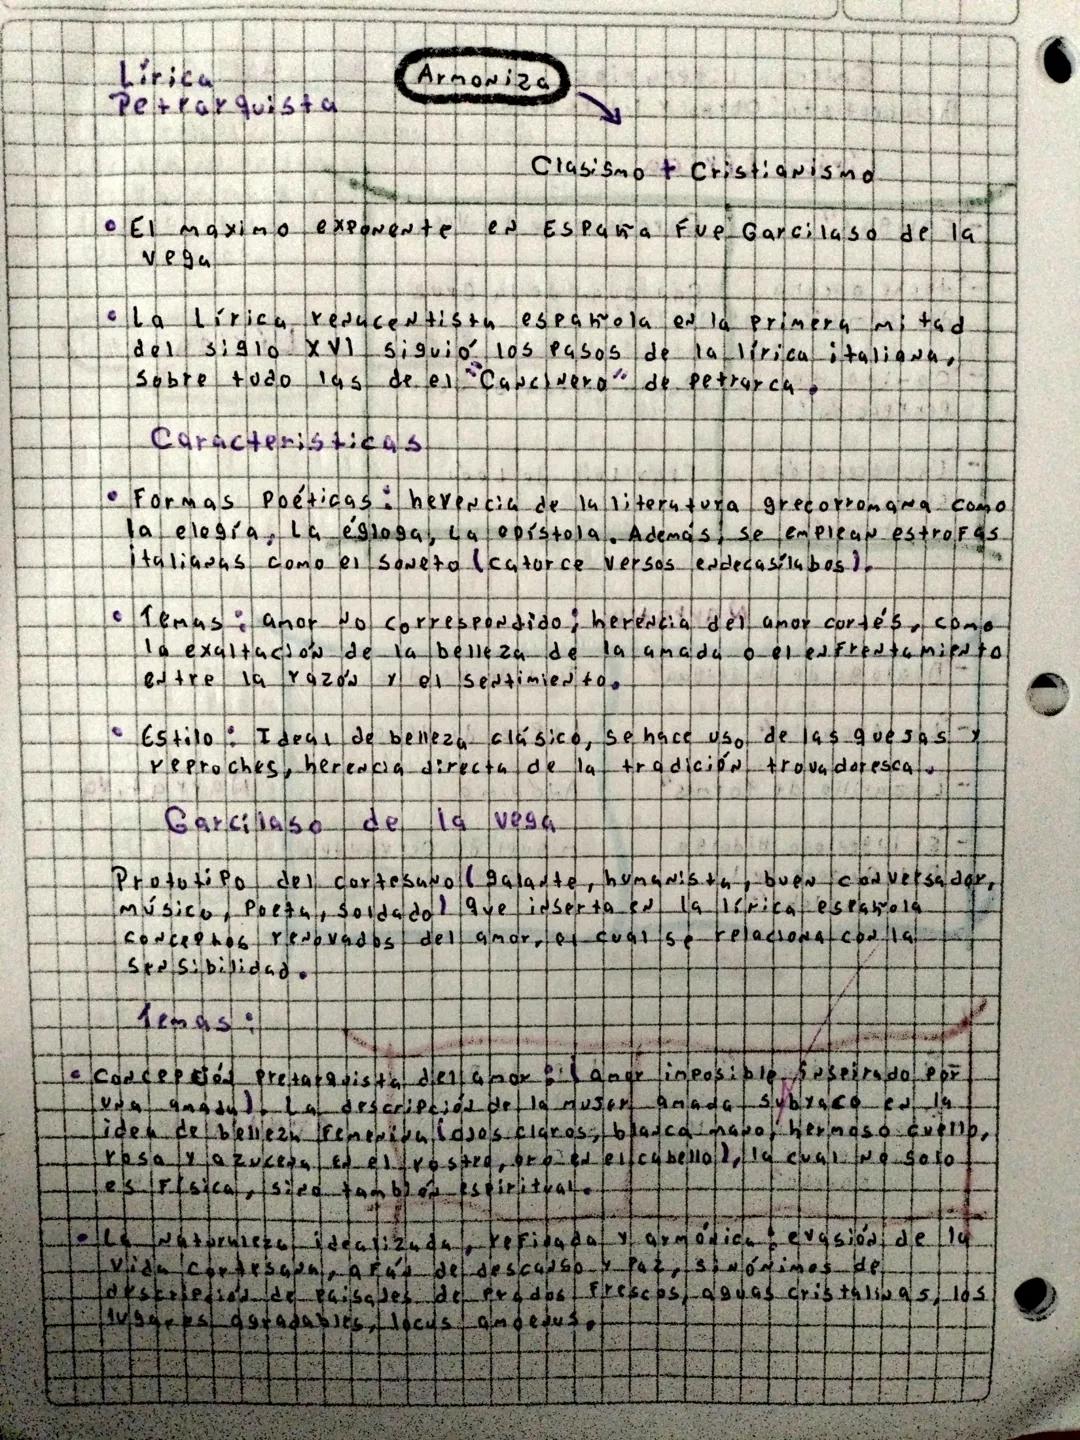 Lírica
Petrarquista
Armoniza
Clasismo + Cristianismo
• El maximo exponente en España Fue Garcilaso de la
vega
• La Lírica renacentista española en la primera mitad
del siglo XVI siguió los pasos de la lírica italiana,
sobre todo las de el "Cancinero" de Petrarca.
Caracteristicas
• Formas Poéticas: herencia de la literatura grecorromana como
la elegía, La égloga, La epístola. Además, se emplean estrofas
italianas como el soneto (catorce versos endecasílabos).
• Temas: amor no correspondido; herencia del amor cortés, como
la exaltación de la belleza de la amada o el enfrentamiento
entre la razón y el sentimiento.
• Estilo: Ideal de belleza clásico, se hace uso de las quejas y
reproches, herencia directa de la tradición trovadoresca.
Garcilaso de la vega
Prototipo del cortesano (galante, humanista, buen conversador,
músico, Poeta, soldado) que inserta en la lírica española
conceptos renovados del amor, el cual se relaciona con la
sensibilidad.
Temas:
• Concepción Pretarquista del amor: (amor imposible inspirado por
una amada). La descripción de la mujer amada subyace en la
idea de belleza Femenina (ojos claros, blanca mano, hermoso cuello,
rosa y azucena en el rostro, oro en el cabello), la cual no solo
es Física, sino también espiritual.
• La naturaleza idealizada, refinada y armónica: evasión de la
vida cortesana, afán de descanso y Paz, sinónimos de
descripción de paisajes de prados Frescos, aguas cristalinas, los
lugares agradables, locus amoenus.